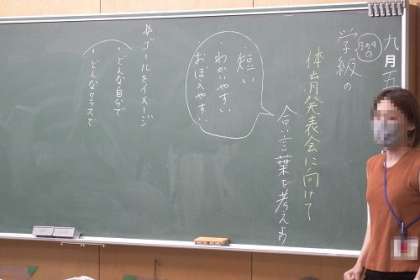 九月五
学級の
体育発表会に向けて
合い言葉を考えよう
短い
・わかりやすい
おぼえやすい
ゴールをイメージ
・どんな自分で
・どんなクラスで